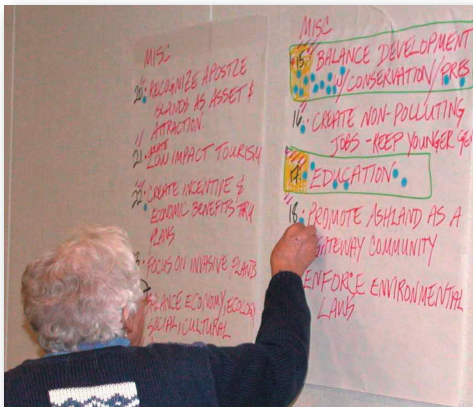 MISC
20. RECOGNIZE APOSTLE
ISLANDS AS ASSET &
ATTRACTION
21. LOW IMPACT TOURISM
22. CREATE INCENTIVE &
ECONOMIC BENEFITS
PLANS
FOCUS ON INVASIVE PLANTS
BALANCE ECONOMY, ECOLOGY
SOCIAL/CULTURAL
MISC
15. BALANCE DEVELOPMENT
W/CONSERVATION/PRES
16. CREATE NON-POLLUTING
JOBS - KEEP YOUNGER GE
17. EDUCATION
18. PROMOTE ASHLAND AS A
GATEWAY COMMUNITY
ENFORCE ENVIRONMENTAL
LAWS